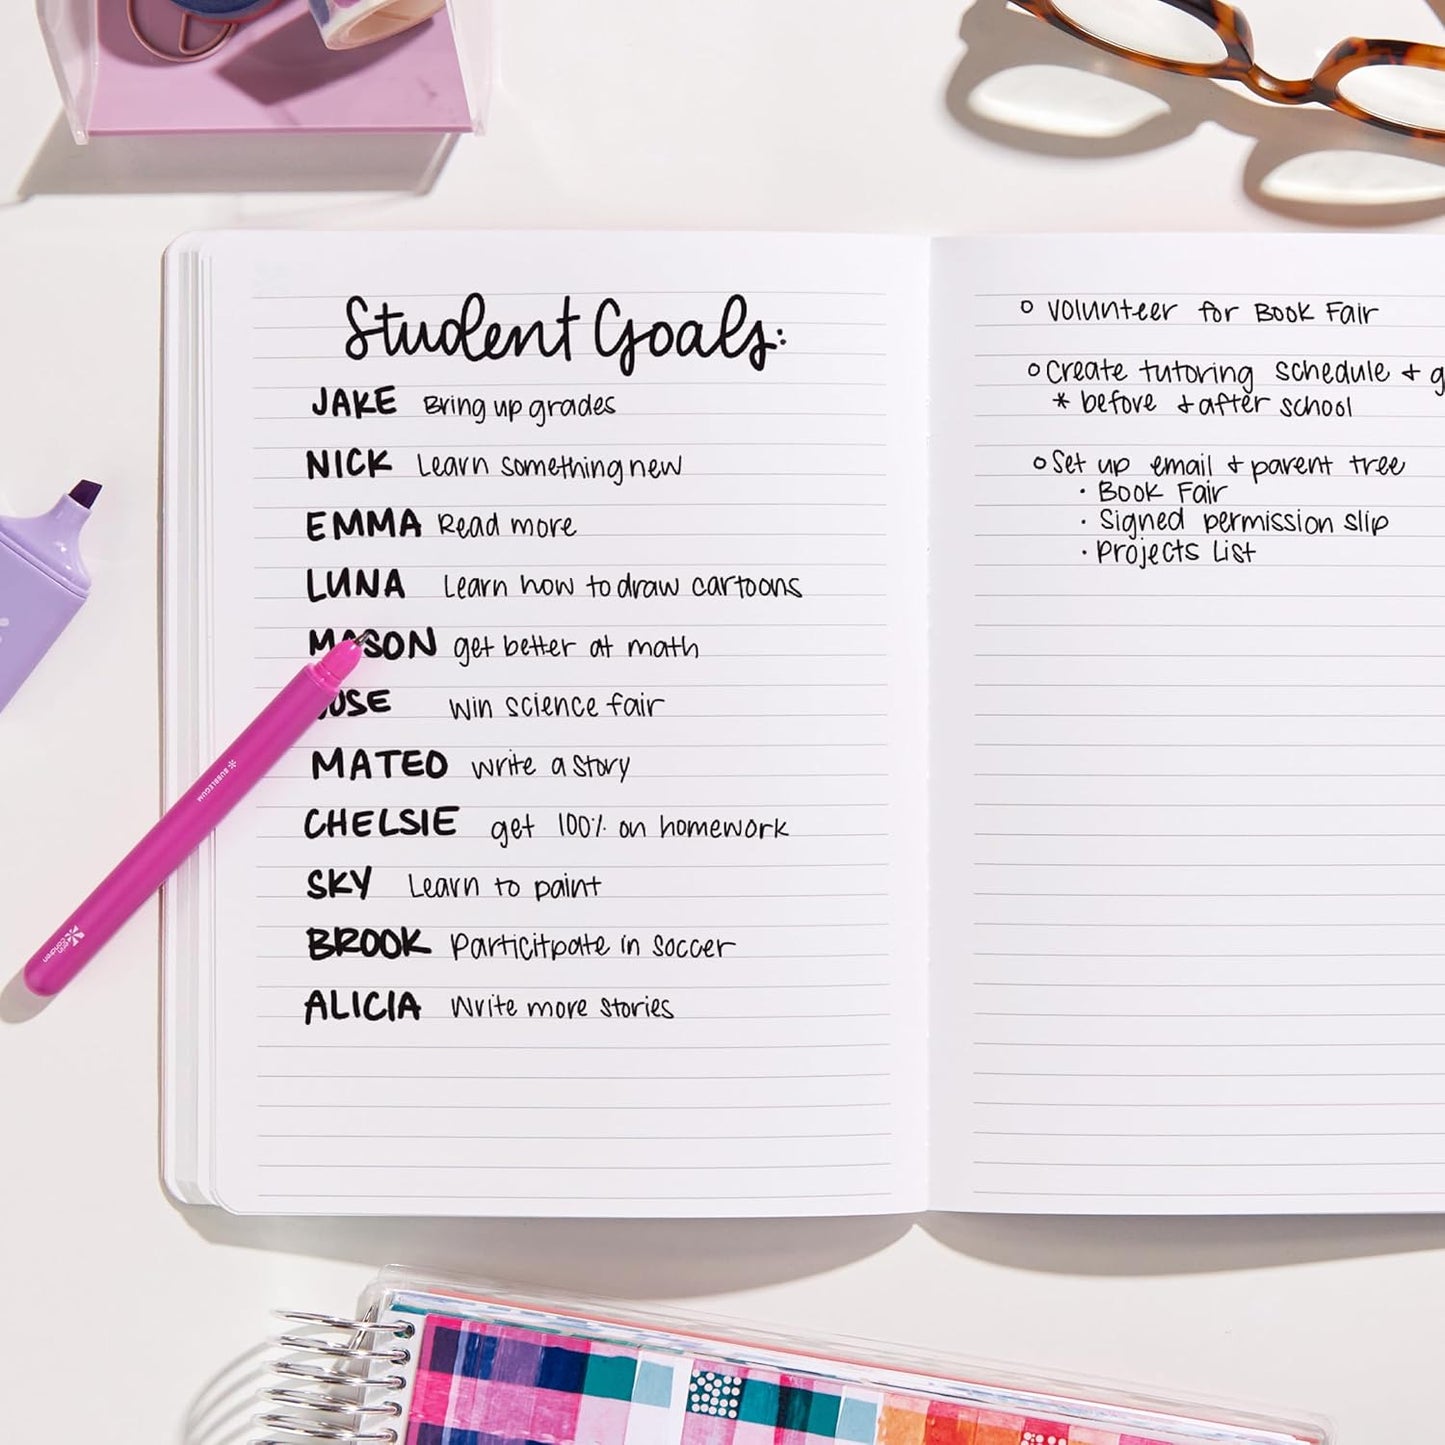 Student Goals:
JAKE Bring up grades
NICK Learn something new
EMMA Read more
LUNA Learn how to draw cartoons
MASON get better at math
JOSE win science fair
MATEO write a story
CHELSIE get 100% on homework
SKY Learn to paint
BROOK Particitpate in soccer
ALICIA Write more stories
Volunteer for Book Fair
Create tutoring schedule +
* before + after school
Set up email + parent tree
• Book Fair
• Signed permission slip
• Projects List
BUBBLEGUM
erin condren